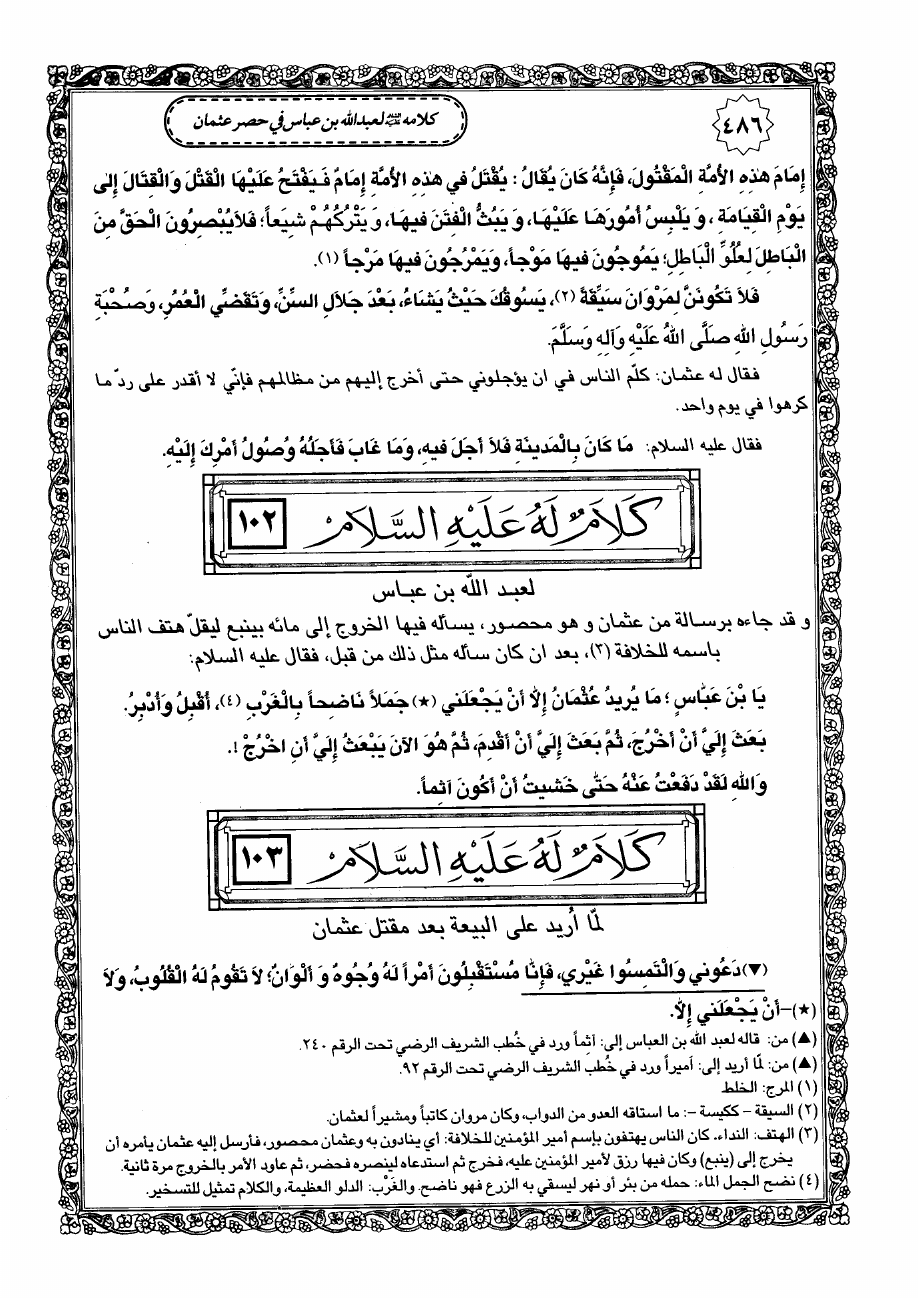 ٤٨٦
كلامه عليه السلام لعبدالله بن عباس في حصر عثمان
إِمَامَ هَذِهِ الأُمَّةِ الْمَقْتُولَ، فَإِنَّهُ كَانَ يُقَالُ: يُقْتَلُ في هَذِهِ الأُمَّةِ إِمَامٌ فَيَفْتَحُ عَلَيْهَا الْقَتْلَ وَالْقِتَالَ إِلى
يَوْمِ الْقِيَامَةِ، وَيَلْبِسُ أُمُورَهَا عَلَيْهَا، وَيَبُثُّ الْفِتَنَ فيهَا، وَيَتْرُكُهُمْ شِيَعاً؛ فَلاَيُبْصِرُونَ الْحَقَّ مِنَ
الْبَاطِلَ لِعُلُوِّ الْبَاطِلِ؛ يَمُوجُونَ فيهَا مَوْجاً، وَيَمْرُجُونَ فيهَا مَرْجاً (١).
فَلاَ تَكُونَنَّ لِمَرْوَانَ سَيِّقَةً (٢)، يَسُوقُكَ حَيْثُ يَشَاءُ، بَعْدَ جَلاَلِ السِّنِّ، وَتَقَضِّي الْعُمُرِ، وَصُحْبَةِ
رَسُولِ اللهِ صَلَّى اللهُ عَلَيْهِ وَآلِهِ وَسَلَّمَ.
فقال له عثمان: كلّم الناس في ان يؤجلوني حتى أخرج إليهم من مظالمهم فإنّي لا أقدر على ردّ ما
كرهوا في يوم واحد.
فقال عليه السلام: مَا كَانَ بِالْمَدينَةِ فَلاَ أَجَلَ فيهِ، وَمَا غَابَ فَأَجَلُهُ وُصُولُ أَمْرِكَ إِلَيْهِ.
كَلَامٌ لَهُ عَلَيْهِ السَّلَامُ ١٠٢
لعبد اللّه بن عباس
و قد جاءه برسالة من عثمان و هو محصور، يسأله فيها الخروج إلى مائه بينبع ليقلّ هتف الناس
باسمه للخلافة (٣)، بعد ان كان سأله مثل ذلك من قبل، فقال عليه السلام:
يَا بْنَ عَبَّاسٍ؛ مَا يُريدُ عُثْمَانُ إِلاَّ أَنْ يَجْعَلَني (★) جَمَلاً نَاضِحاً بِالْغَرْبِ (٤)، أُقْبِلُ وَأُدْبِرُ.
بَعَثَ إِلَيَّ أَنْ أَخْرُجَ، ثُمَّ بَعَثَ إِلَيَّ أَنْ أَقْدِمَ، ثُمَّ هُوَ الآنَ يَبْعَثُ إِلَيَّ أَنِ اخْرُجْ !.
وَاللهِ لَقَدْ دَفَعْتُ عَنْهُ حَتَّى خَشيتُ أَنْ أَكُونَ آثِماً.
كَلَامٌ لَهُ عَلَيْهِ السَّلَامُ ١٠٣
لمّا أُريد على البيعة بعد مقتل عثمان
(▼) دَعُوني وَالْتَمِسُوا غَيْري، فَإِنَّا مُسْتَقْبِلُونَ أَمْراً لَهُ وُجُوهٌ وَأَلْوَانٌ؛ لاَ تَقُومُ لَهُ الْقُلُوبُ، وَلاَ
(★)-أَنْ يَجْعَلَني إِلاَّ.
(▲) من: قاله لعبد الله بن العباس إلى: آثِماً ورد في خُطب الشريف الرضي تحت الرقم ٢٤٠.
(▲) من: لمّا أريد إلى: أميراً ورد في خُطب الشريف الرضي تحت الرقم ٩٢.
(١) المرج: الخلط
(٢) السيقة – ككيسة –: ما استاقه العدو من الدواب، وكان مروان كاتباً ومشيراً لعثمان.
(٣) الهتف: النداء. كان الناس يهتفون بإسم أمير المؤمنين للخلافة: أي ينادون به وعثمان محصور، فأرسل إليه عثمان يأمره أن
يخرج إلى (ينبع) وكان فيها رزق لأمير المؤمنين عليه، فخرج ثم استدعاه لينصره فحضر، ثم عاود الأمر بالخروج مرة ثانية.
(٤) نضح الجمل الماء: حمله من بئر أو نهر ليسقي به الزرع فهو ناضح. والغَرْب: الدلو العظيمة، والكلام تمثيل للتسخير.